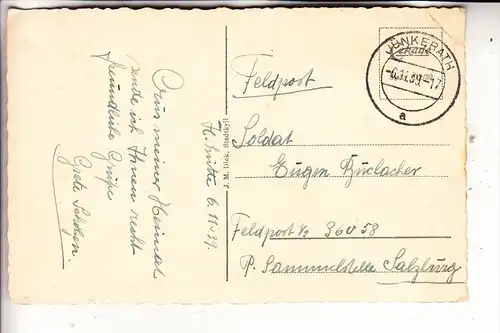 Aus meiner Heimat
sende ich Ihnen recht
freundliche Grüße
Grete
6.11.39.
J. M. Dick, Stadtkyll
JÜNKERATH
-6.11.39.-17
a
Feldpost
Soldat
Eugen
Feldpost Nr 36058
P. Sammelstelle Salzburg